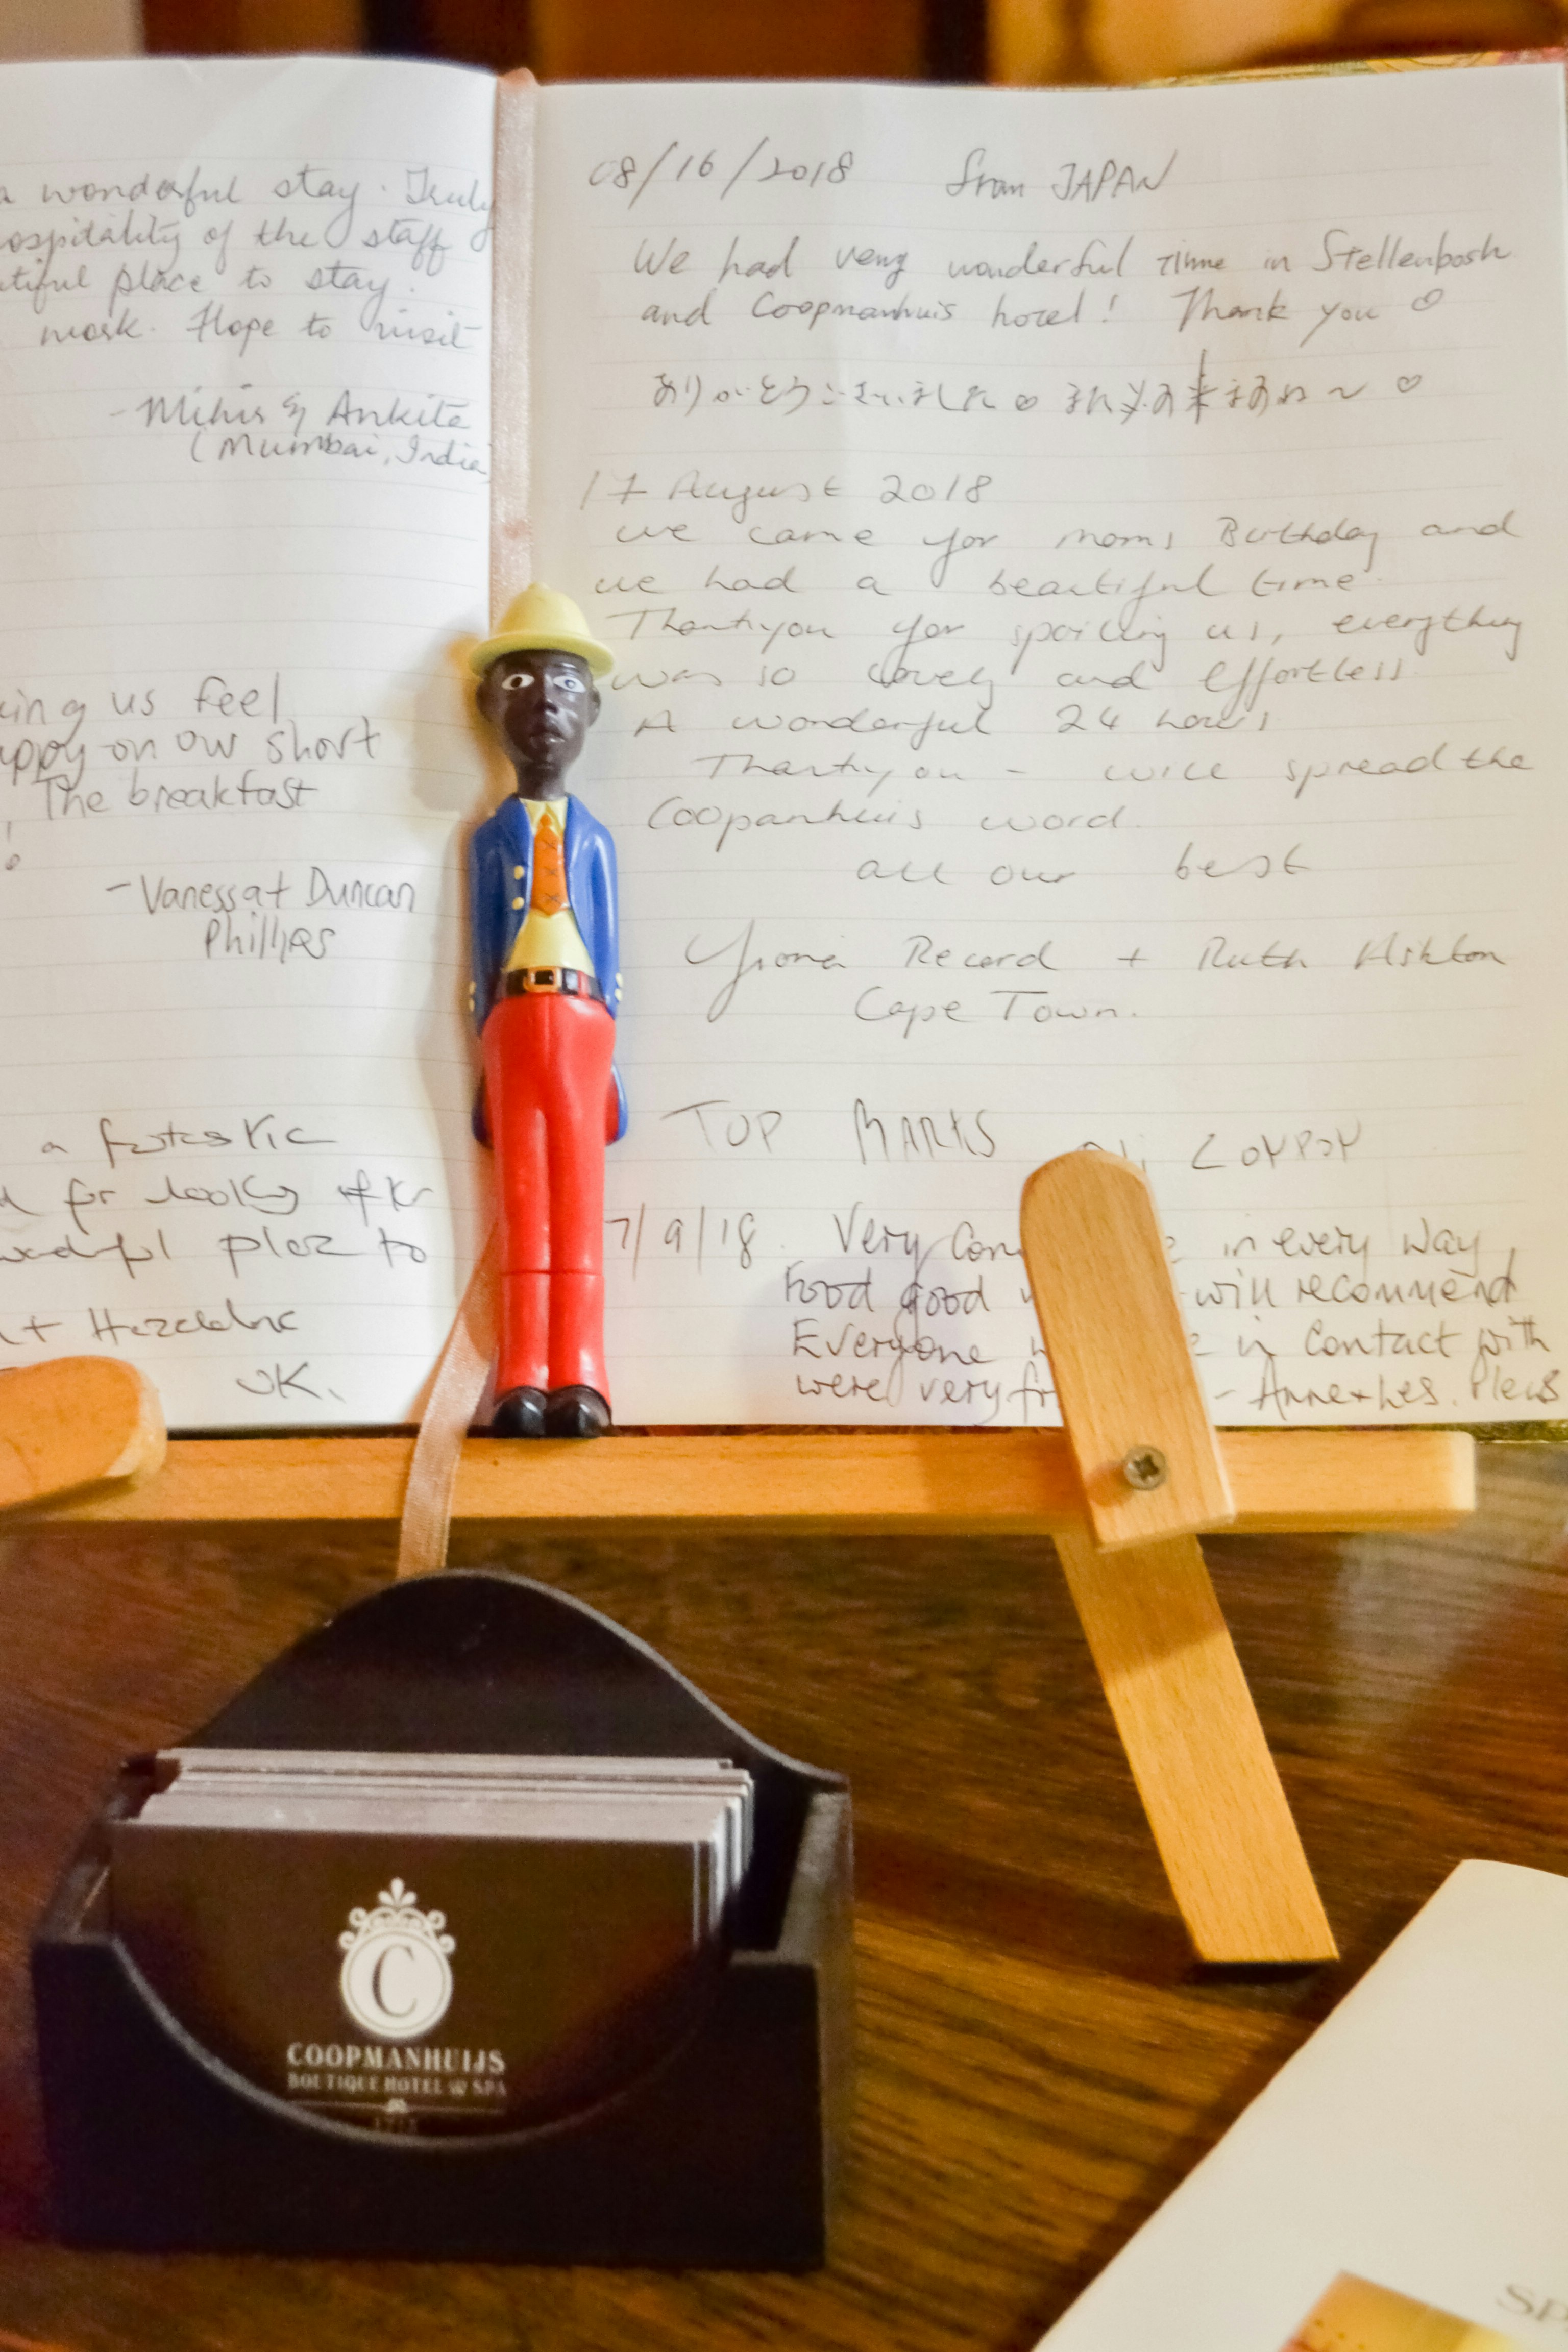 a wonderful stay. Truly
ospitality of the staff
tiful place to stay.
work. Hope to visit
- Mihir & Ankita
(Mumbai, India
king us feel
appy on our short
, The breakfast
- Vanessa + Duncan
Phillips
a fantastic
for looking after
place to
UK.
08/16/2018 from JAPAN
We had very wonderful time in Stellenbosh
and Coopmanhuis hotel! Thank you
ありがとうございました
17 August 2018
we came for moms Birthday and
we had a beautiful time.
Thankyou for spoiling us, everything
was so lovely and effortless.
A wonderful 24 hours
Thankyou - will spread the
Coopanhuis word.
all our best
Record + Ruth Ashton
Cape Town.
TOP MARKS
7/9/18 Very in every way,
Food good will recommend
Everyone in contact with
were very - Anne + Les.
C
COOPMANHUIJS
BOUTIQUE HOTEL & SPA
SP